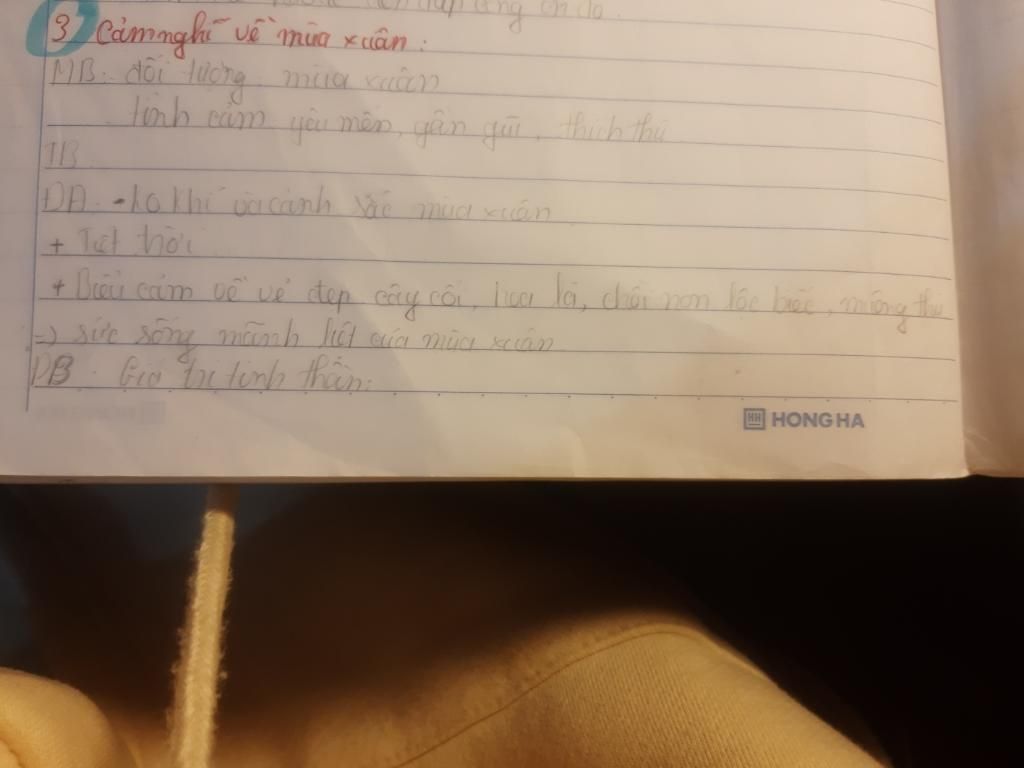 3 Cảm nghĩ về mùa xuân:
MB: đối tượng: mùa xuân
tình cảm yêu mến, gần gũi, thích thú
TB
ĐA: -ko khí và cảnh sắc mùa xuân
+ Tiết trời
+ Biểu cảm về vẻ đẹp cây cối, hoa lá, chồi non lộc biếc, muông thú
=> sức sống mãnh liệt của mùa xuân
ĐB: Giá trị tinh thần:
HH HONG HA